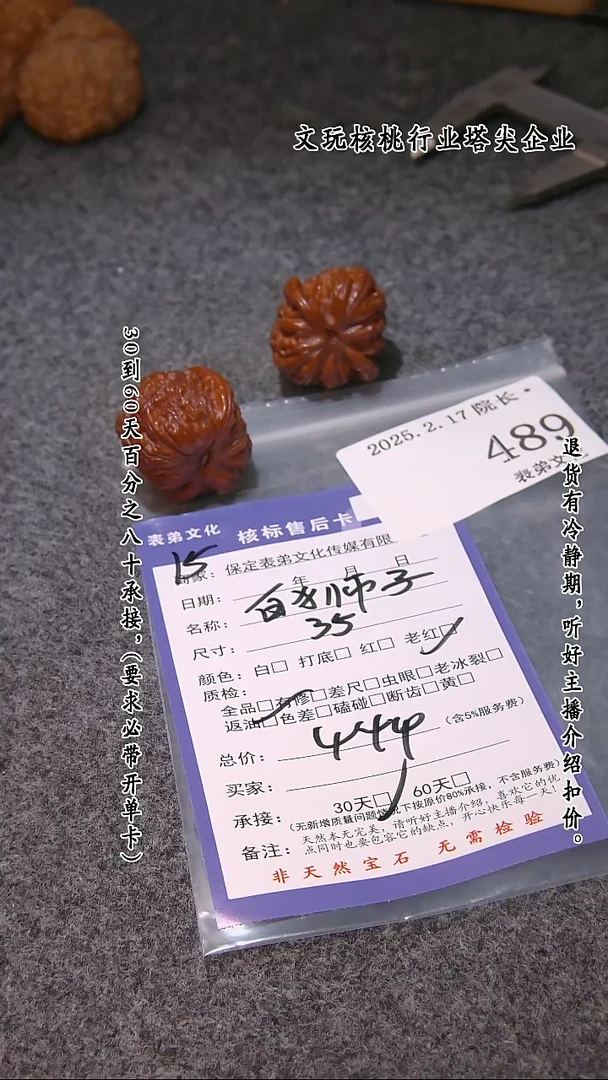 文玩核桃行业塔尖企业
30到60天百分之八十承接,(要求必带开单卡)
退货有冷静期,听好主播介绍扣价。
2025.2.17院长·
489
表弟文
表弟文化 核标售后卡
15
商家:保定表弟文化传媒有限
日期: 年 月 日
名称:白狮子
尺寸:35
颜色:白□ 打底□ 红□ 老红□
质检:
全品□有修□差尺□虫眼□老冰裂□
返油□色差□磕碰□断齿□黄□
总价: (含5%服务费)
买家:
承接: 30天□ 60天□
(无新增质量问题情况下按原价80%承接,不含服务费)
备注:天然本无完美,请听好主播介绍,喜欢它的优
点同时也要包容它的缺点,开心快乐每一天!
非天然宝石 无需检验